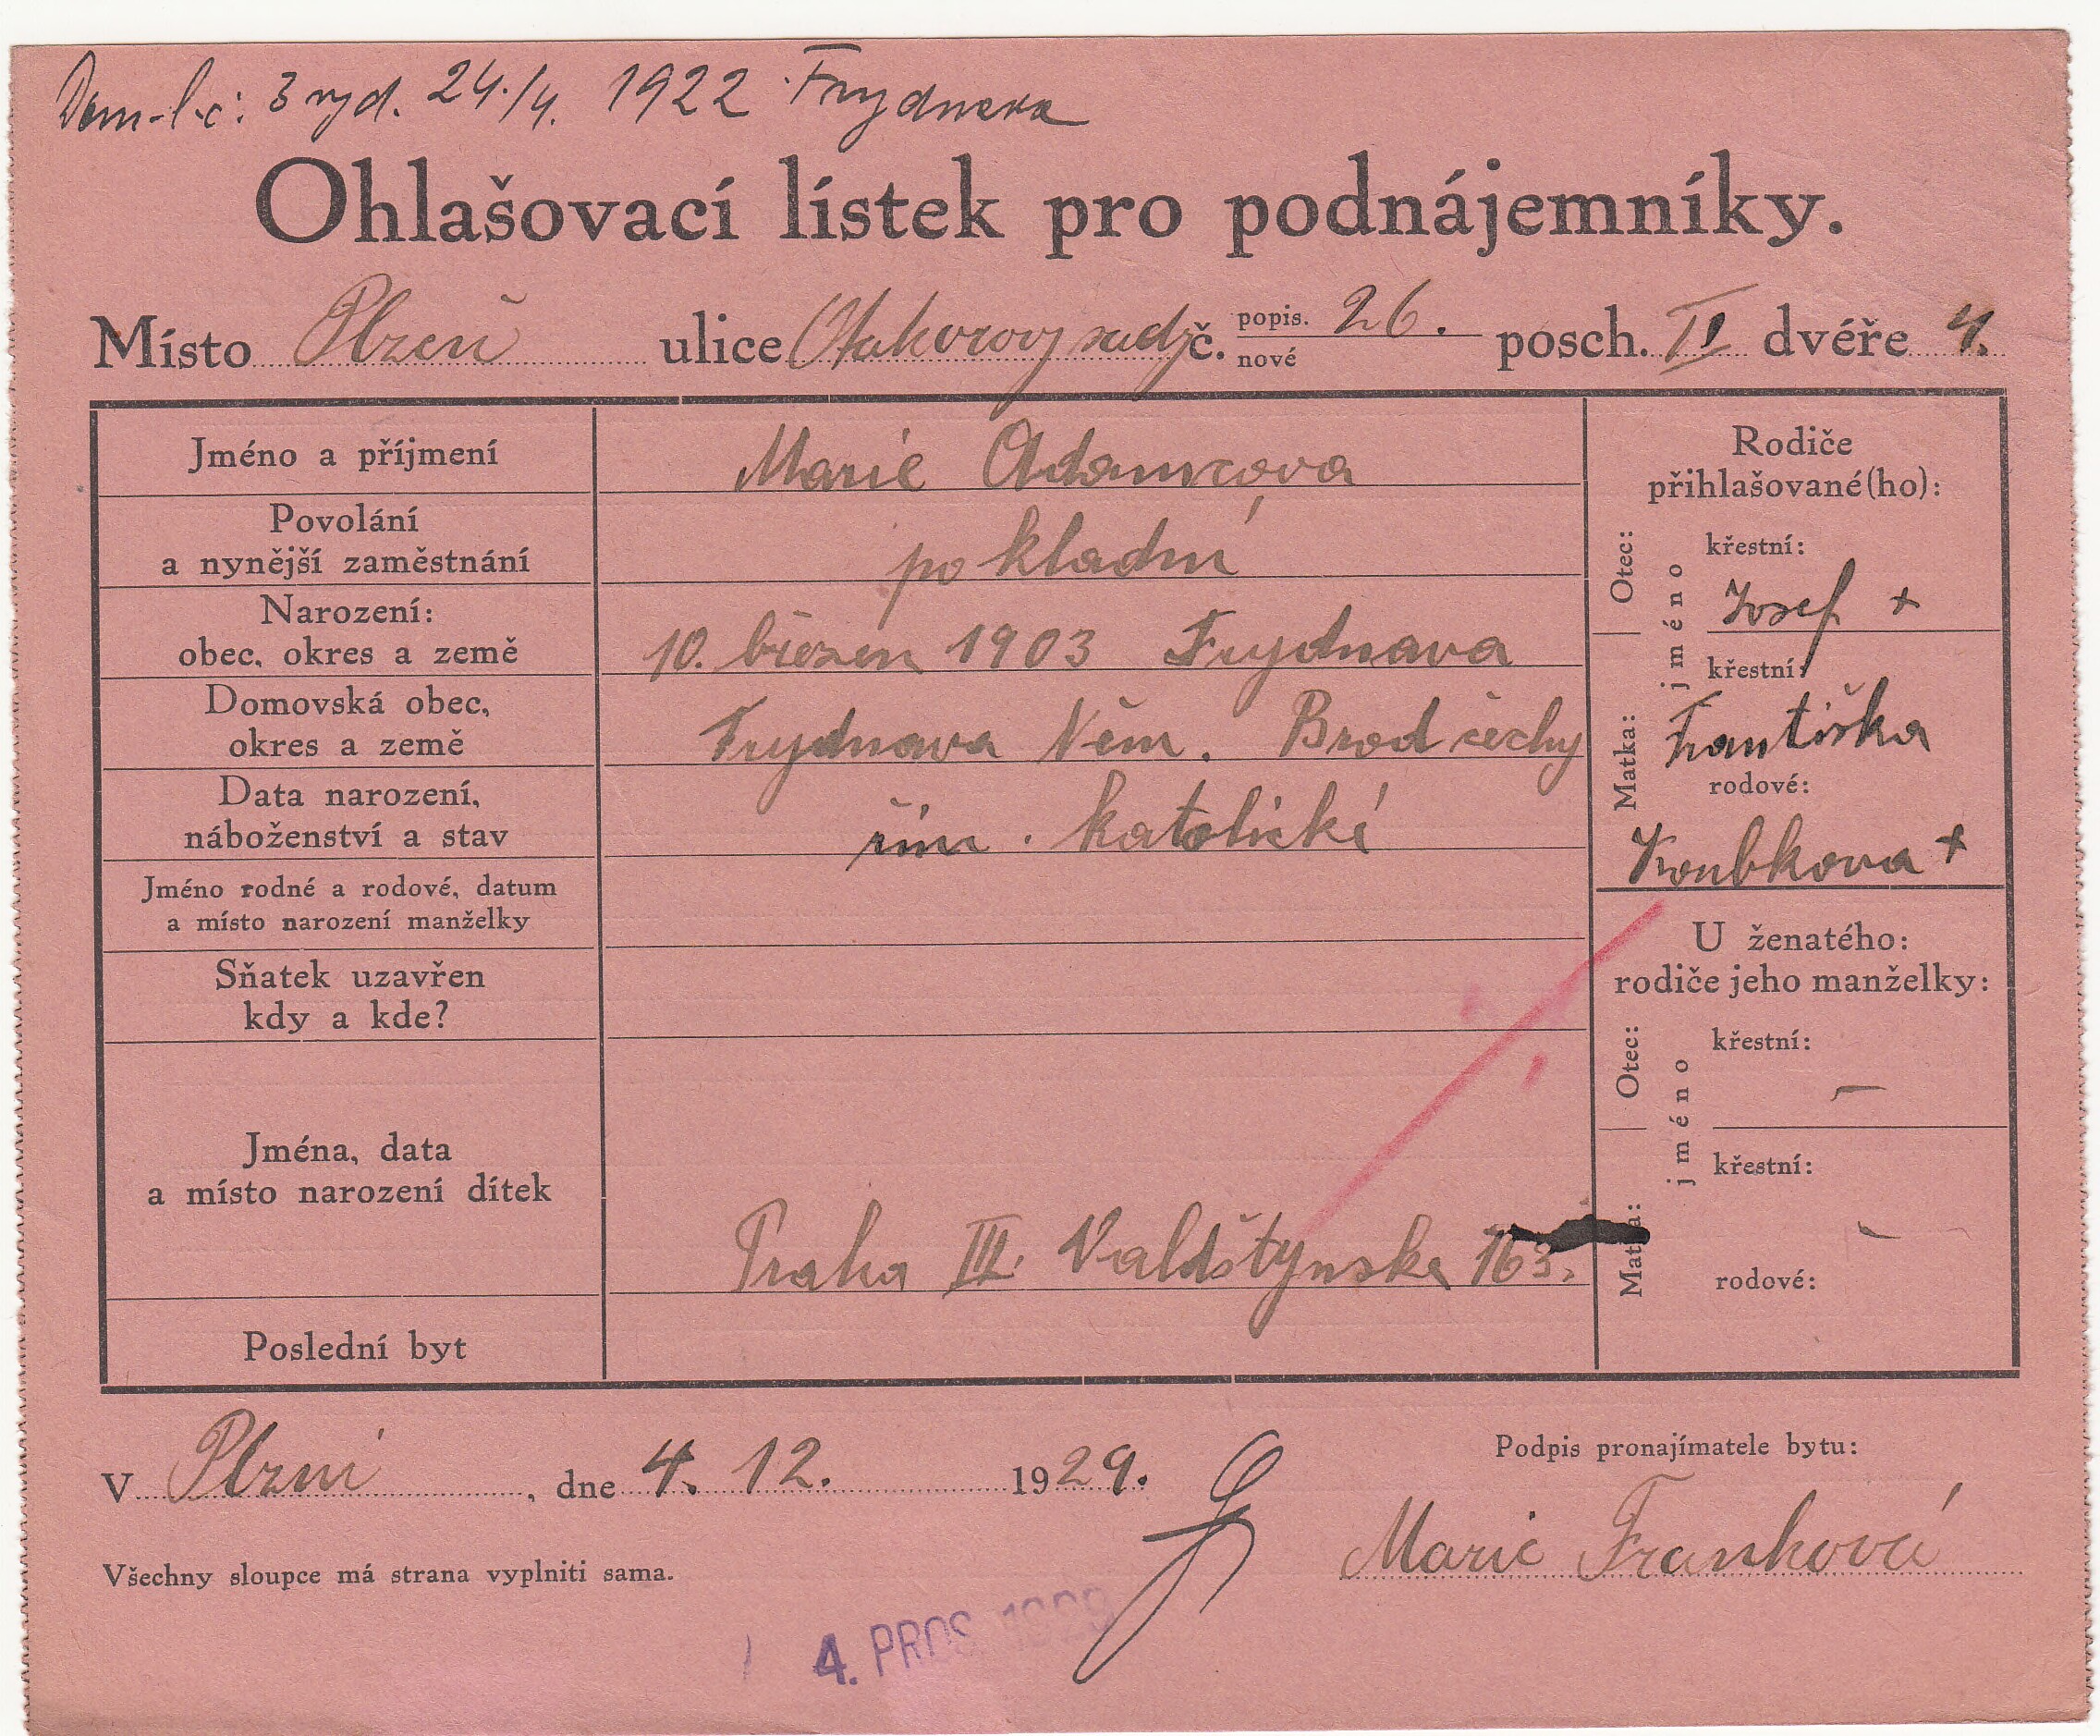 Dom. l. č: 3 vyd. 24./4. 1922 Frydnava
Ohlašovací lístek pro podnájemníky.
Místo Plzeň ulice Otakarovy sady č. popis. nové 26. posch. II dvéře 4.
Jméno a příjmení Marie Adamcova
Povolání
a nynější zaměstnání pokladní
Narození:
obec, okres a země 10. březen 1903 Frydnava
Domovská obec,
okres a země Frydnava Něm. Brod čechy
Data narození,
náboženství a stav řím. katolické
Jméno rodné a rodové, datum
a místo narození manželky
Sňatek uzavřen
kdy a kde?
Jména, data
a místo narození dítek
Praha III. Valdštynska 163.
Poslední byt
Rodiče
přihlašované(ho):
Otec:
jméno
křestní:
Josef +
Matka:
křestní:
Františka
rodové:
Koubkova +
U ženatého:
rodiče jeho manželky:
Otec:
jméno
křestní:
—
Matka:
křestní:
–
rodové:
V Plzni, dne 4. 12. 1929.
Podpis pronajímatele bytu:
Marie Franková
Všechny sloupce má strana vyplniti sama.
4. PROS. 1929